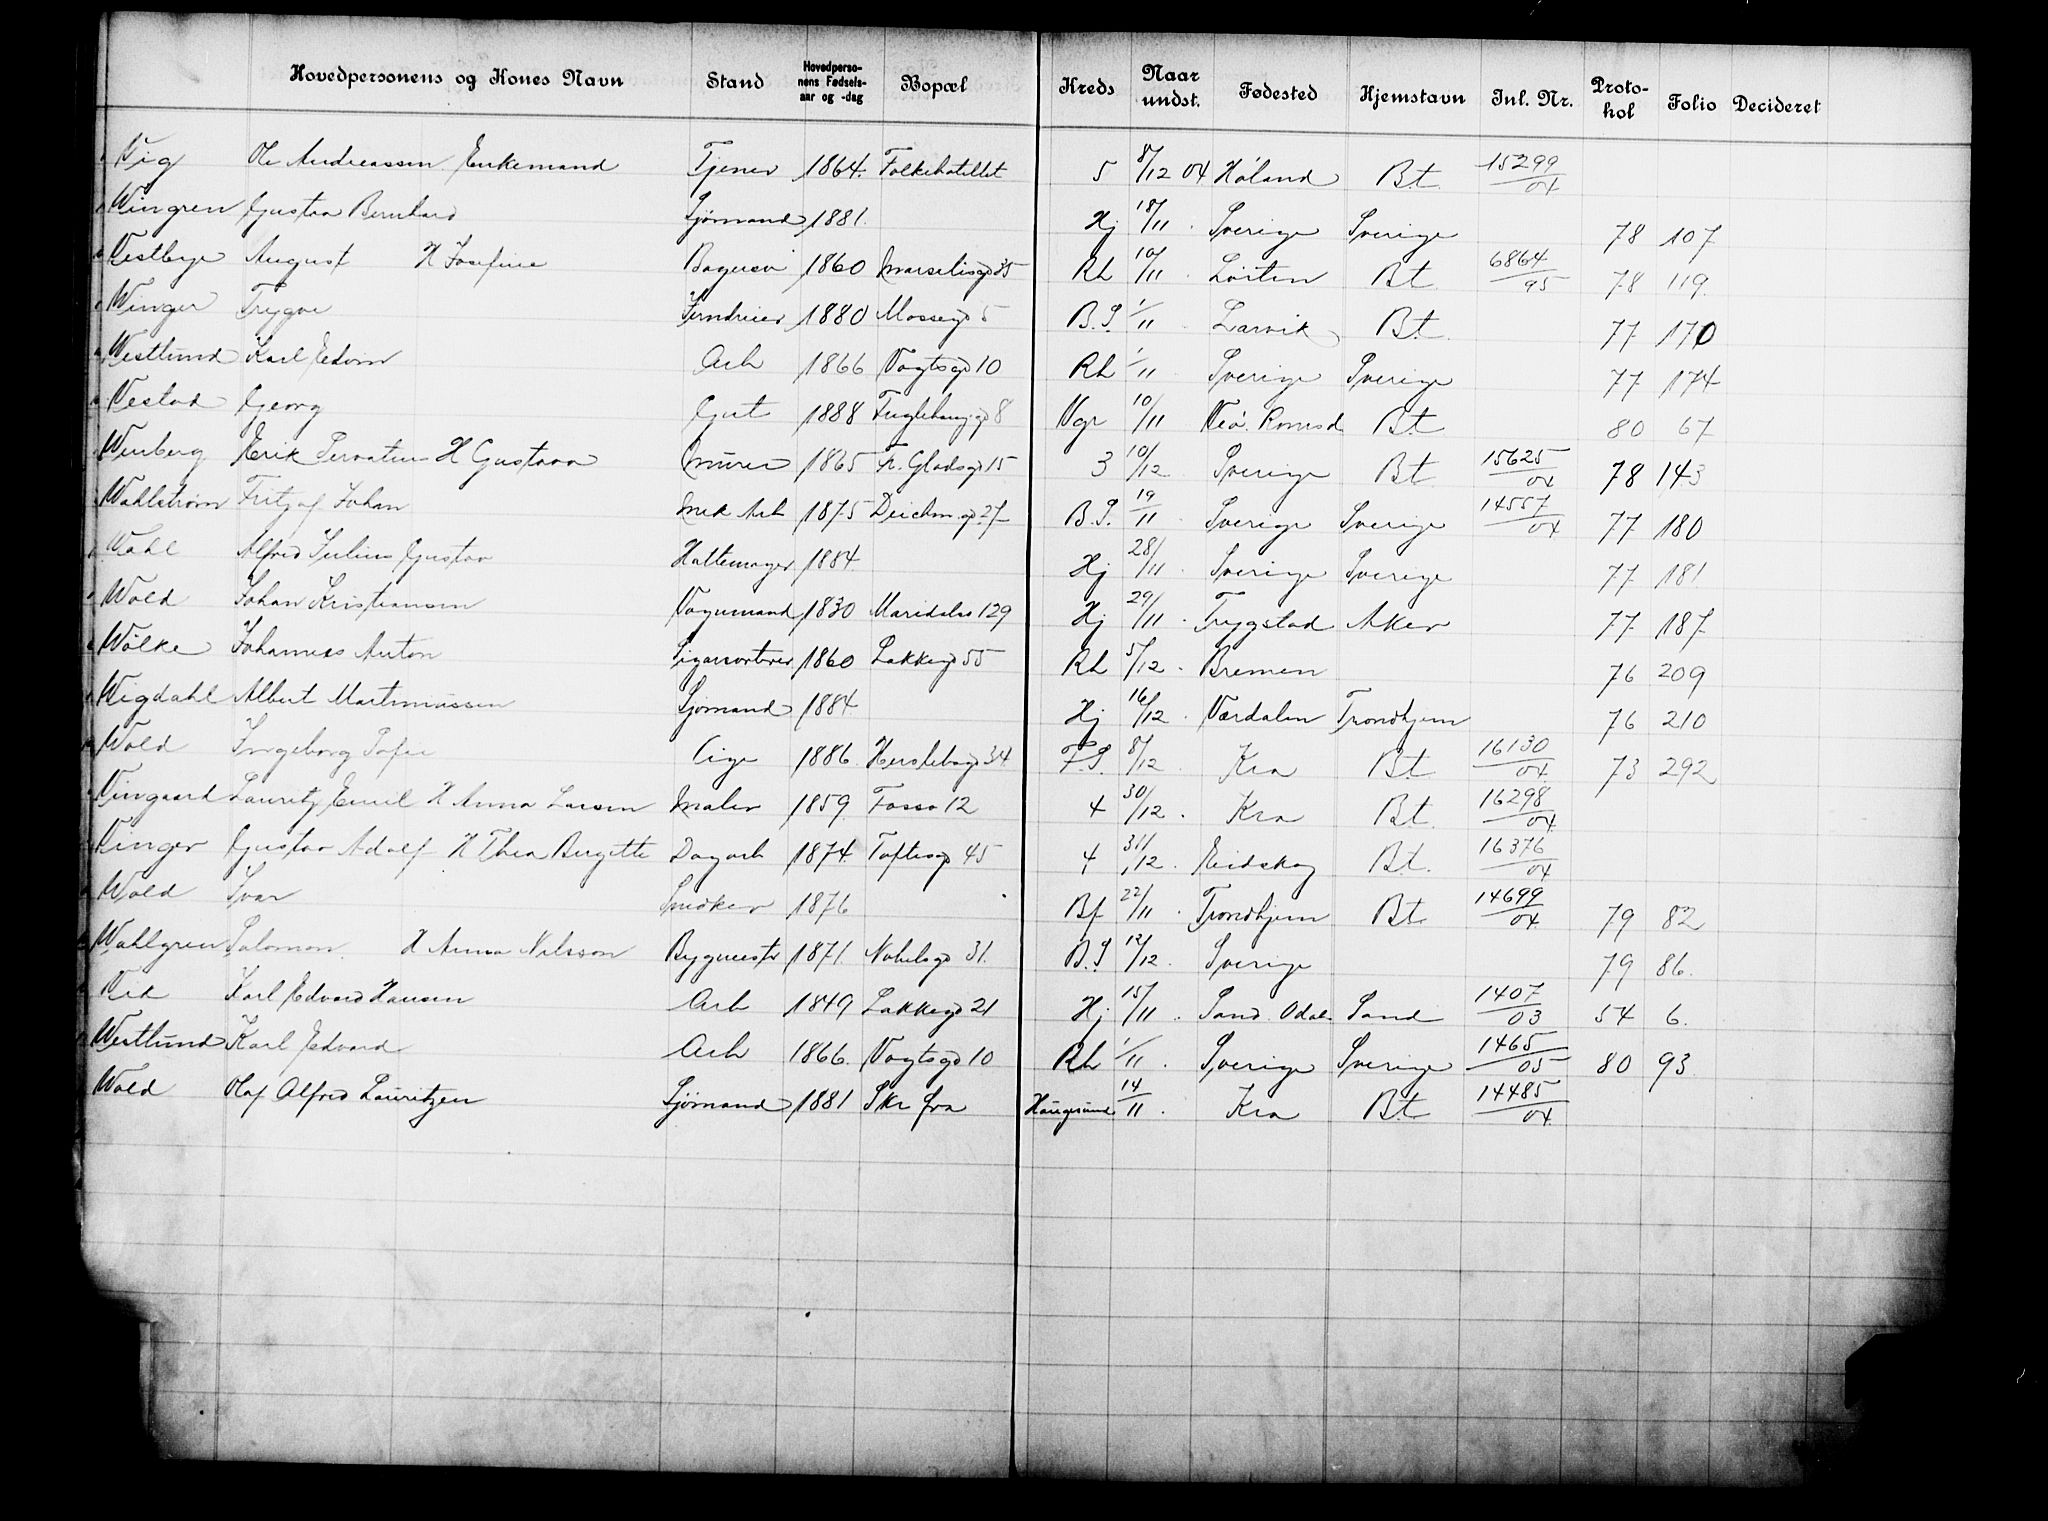 Hovedpersonens og Kones Navn Stand Hovedpersonens Fødselsaar og -dag Bopæl Kreds Naar undst. Fødested Hjemstavn Inl. Nr. Protokol Folio Decideret
Vig Ole Andreassen Enkemand Tjener 1864. Folkehotellet 5 8/12 04 Høland Bt 15299/04
Wingren Gustav Bernhard Sjømand 1881. Hj 18/11 Sverige Sverige 78 107
Vestbye August H Josefine Bagersv 1860 Marselisgd 35 Rh 10/11 Løiten Bt 6864/95 78 119.
Winger Trygve Jerndreier 1880 Mossegd 5 B.S. 1/11 Larvik Bt 77 170
Westlund Karl Edvin Arb 1866 Vogtsgd 10 Rh 1/11 Sverige Sverige 77 174
Vestad Georg Gut 1888 Fuglehauggd 8 Vgr 10/11 Veø. Romsd Bt 80 67
Wenberg Erik H Gustava Murer 1865 Fr. Gladsgd 15 3 10/12 Sverige Bt 15625/04 78 143
Wahlstrøm Fritjof Johan Mek Arb 1875 Deichm.gd 27 B.S. 19/11 Sverige Sverige 14557/04 77 180
Wahl Alfred Julius Gustav Hattemager 1884. Hj 28/11 Sverige Sverige 77 181
Wold Johan Kristiansen Vognmand 1830 Maridalsv 129 Hj 29/11 Trygstad Aker 77 187
Wölke Johannes Anton Sigarsorterer 1860 Lakkegd 55 Rh 5/12 Bremen 76 209
Wigdahl Albert Martinniussen Sjømand 1884 Hj 16/12 Værdalen Trondhjem 76 210
Wold Ingeborg Sofie Pige 1886. Herslebsgd 34 F.S. 8/12 Kra Bt 16130/04 73 292
Vingaard Lauritz Emil H Anna Larsen Maler 1859. Fossv 12 4 30/12 Kra Bt. 16298/04
Vinger Gustav Adolf H Thea Birgitte Dagarb 1874 Toftesgd 45 4 31/12 Eidskog Bt. 16376/04
Wold Ivar Snedker 1876 Bf 22/11 Trondhjem Bt 14699/04 79 82
Wahlgren Salomon H Anna Nilsson Bygmester 1871. Nobelsgd 31. B.S 12/12 Sverige 79 86.
Vik Karl Edvard Hansen Arb 1849 Lakkegd 21 Hj 15/11 Sand. Odal Sand 1407/03 54 6.
Westlund Karl Edvard Arb 1866. Vogtsgd 10 Rh 1/11 Sverige Sverige 1465/05 80 93.
Wold Olaf Alfred Lauritzen Sjømand 1881 Skr fra Haugesund 14/11 Kra Bt 14485/04